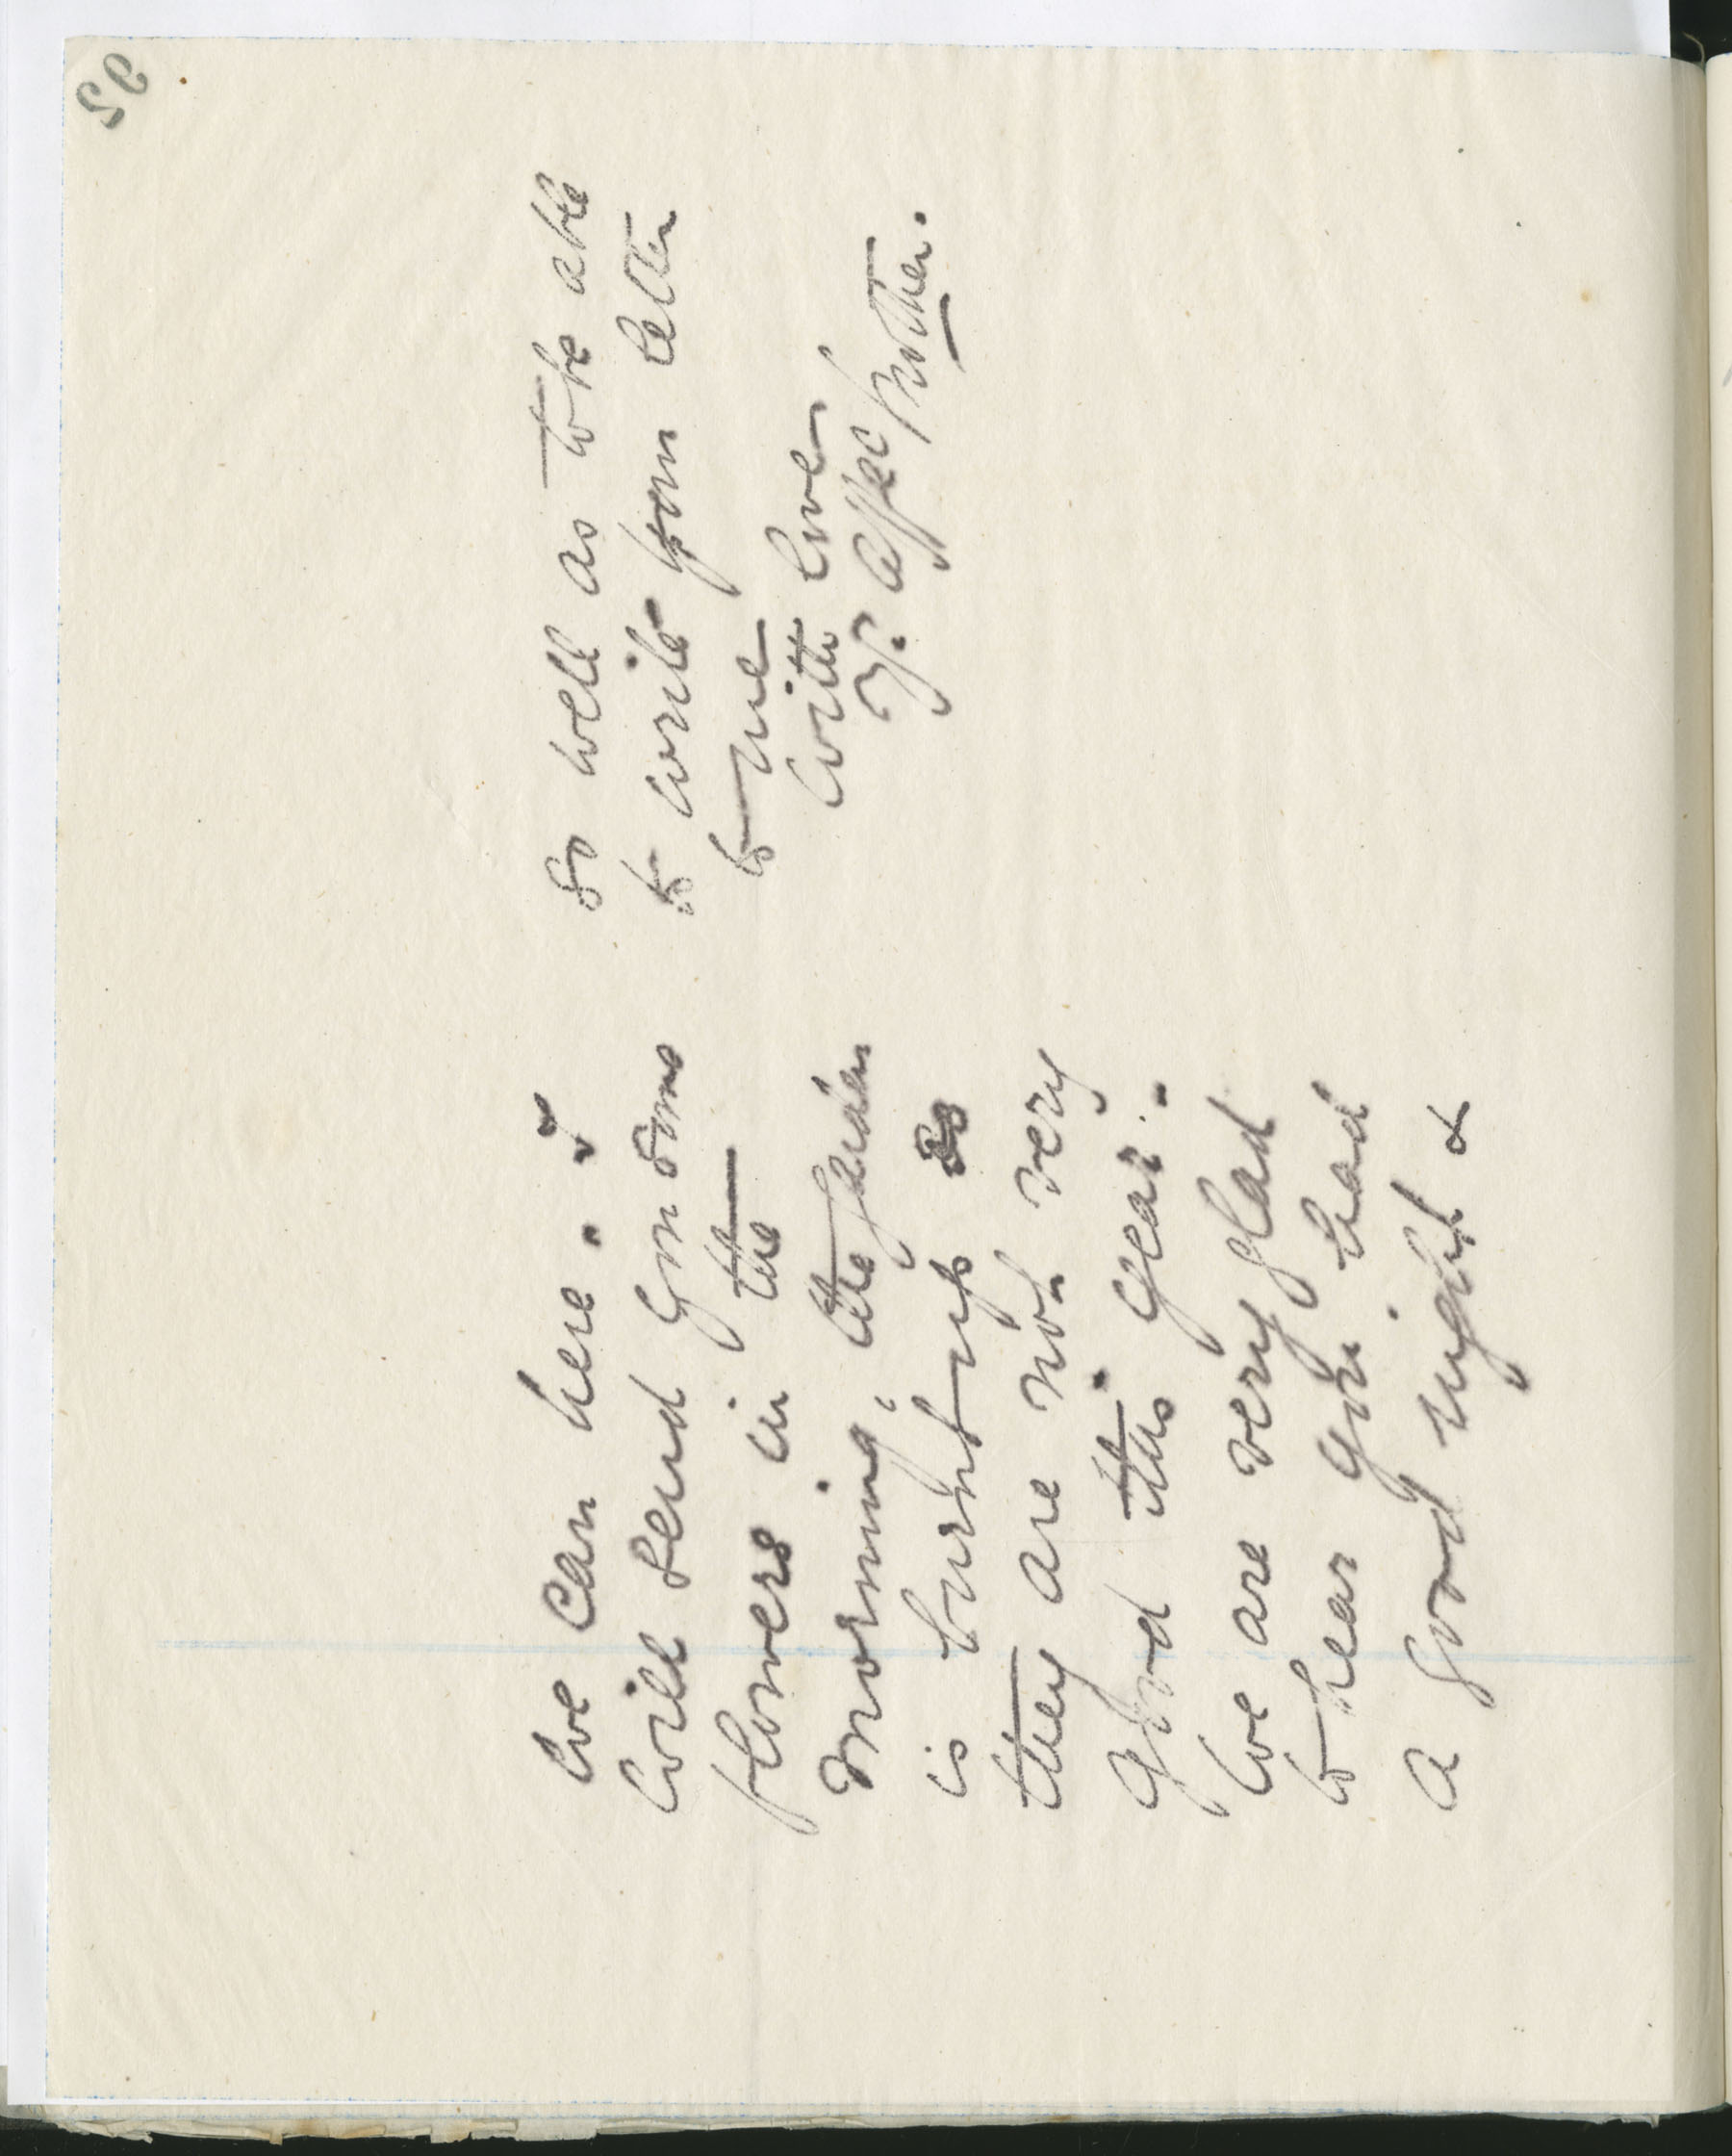 we can here. I
will send you some
flowers in the
morning, the garden
is burnt up so
they are not very
good this year.
We are very glad
to hear you had
a good night &
so well as to be able
to write your letter
to me
With love
Yr. affec Mother.